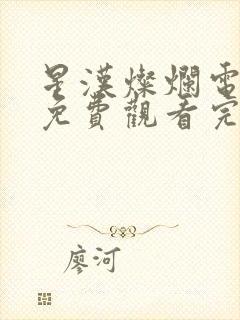 星漢燦爛電
免費觀看完
廖河